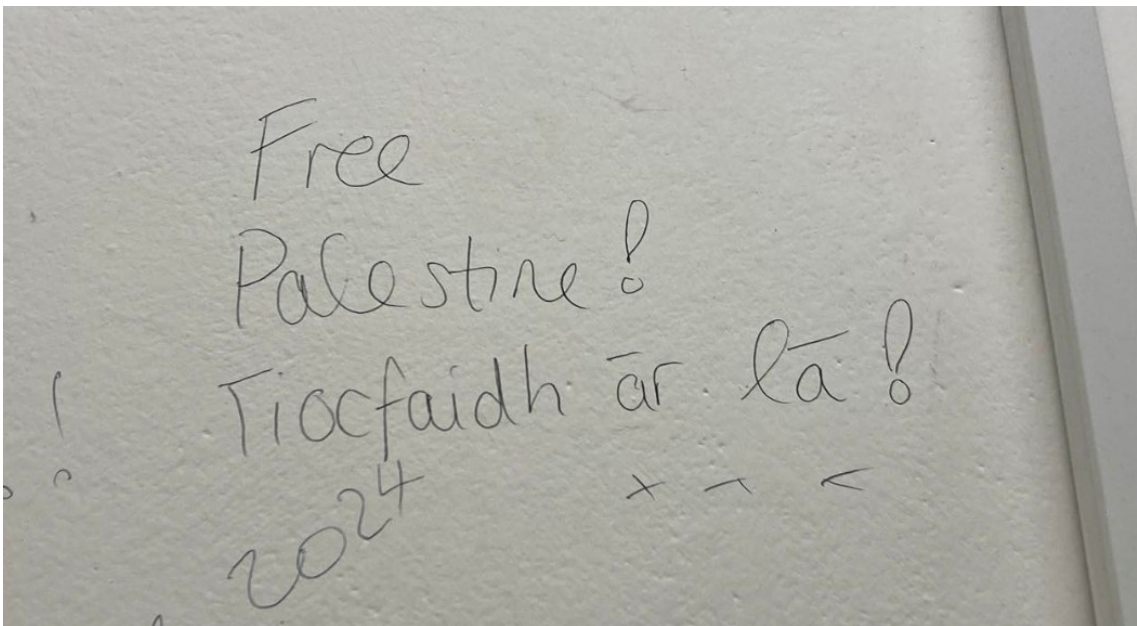 Free
Palestine!
Tiocfaidh ār lā!
2024